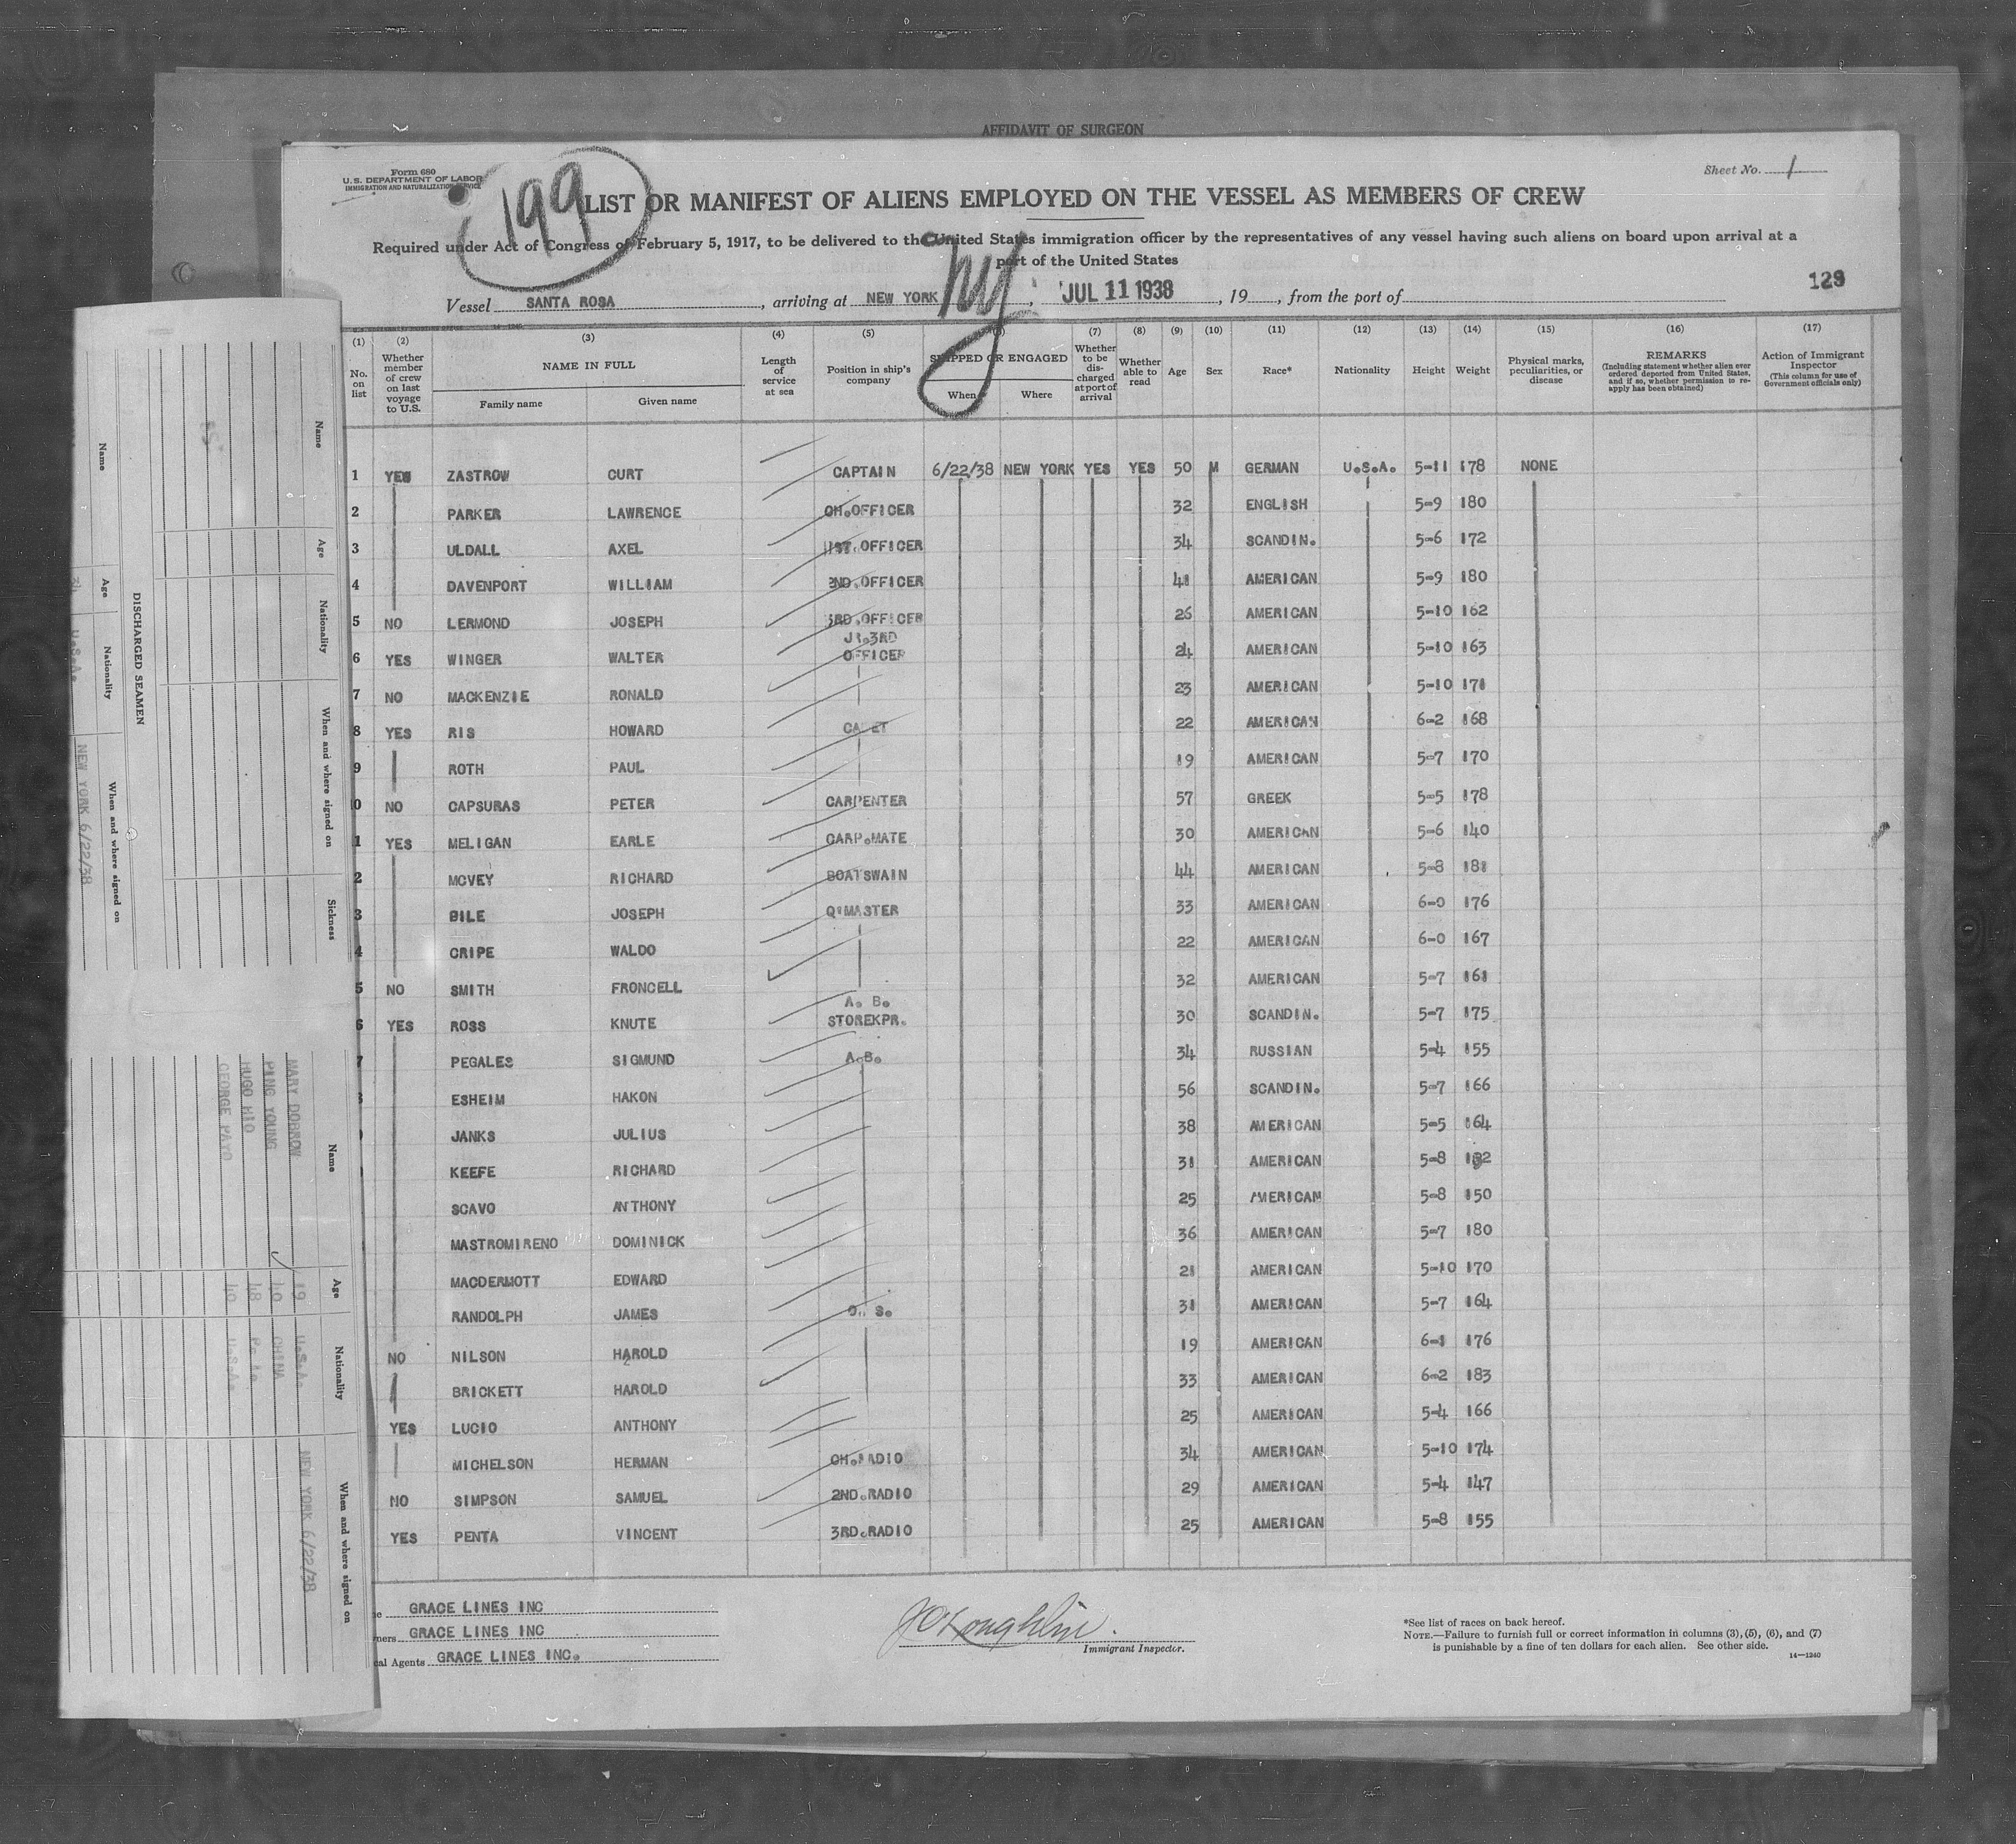 AFFIDAVIT OF SURGEON
Form 680
U.S. DEPARTMENT OF LABOR
IMMIGRATION AND NATURALIZATION SERVICE
199
Sheet No. 1
LIST OR MANIFEST OF ALIENS EMPLOYED ON THE VESSEL AS MEMBERS OF CREW
Required under Act of Congress of February 5, 1917, to be delivered to the United States immigration officer by the representatives of any vessel having such aliens on board upon arrival at a
port of the United States
129
Vessel SANTA ROSA, arriving at NEW YORK, JUL 11 1938, 19, from the port of
(1) (2) (3) (4) (5) (7) (8) (9) (10) (11) (12) (13) (14) (15) (16) (17)
No. on list
Whether member of crew on last voyage to U.S.
NAME IN FULL
Family name
Given name
Length of service at sea
Position in ship's company
SHIPPED OR ENGAGED
When
Where
Whether to be discharged at port of arrival
Whether able to read
Age
Sex
Race*
Nationality
Height
Weight
Physical marks, peculiarities, or disease
REMARKS
(Including statement whether alien ever ordered deported from United States, and if so, whether permission to reapply has been obtained)
Action of Immigrant Inspector
(This column for use of Government officials only)
1 YES ZASTROW CURT CAPTAIN 6/22/38 NEW YORK YES YES 50 M GERMAN U.S.A. 5-11 178 NONE
2 PARKER LAWRENCE CH.OFFICER 32 ENGLISH 5-9 180
3 ULDALL AXEL 1ST.OFFICER 34 SCANDIN. 5-6 172
4 DAVENPORT WILLIAM 2ND.OFFICER 41 AMERICAN 5-9 180
5 NO LERMOND JOSEPH 3RD.OFFICER 26 AMERICAN 5-10 162
6 YES WINGER WALTER JR.3RD OFFICER 24 AMERICAN 5-10 163
7 NO MACKENZIE RONALD 23 AMERICAN 5-10 171
8 YES RIS HOWARD CADET 22 AMERICAN 6-2 168
9 ROTH PAUL 19 AMERICAN 5-7 170
10 NO CAPSURAS PETER CARPENTER 57 GREEK 5-5 178
1 YES MELIGAN EARLE CARP.MATE 30 AMERICAN 5-6 140
2 MCVEY RICHARD BOATSWAIN 44 AMERICAN 5-8 181
3 BILE JOSEPH Q'MASTER 33 AMERICAN 6-0 176
4 CRIPE WALDO 22 AMERICAN 6-0 167
5 NO SMITH FRONCELL 32 AMERICAN 5-7 161
6 YES ROSS KNUTE A. B. STOREKPR. 30 SCANDIN. 5-7 175
7 PEGALES SIGMUND A.B. 34 RUSSIAN 5-4 155
ESHEIM HAKON 56 SCANDIN. 5-7 166
JANKS JULIUS 38 AMERICAN 5-5 164
KEEFE RICHARD 31 AMERICAN 5-8
SCAVO ANTHONY 25 AMERICAN 5-8 150
MASTROMIRENO DOMINICK 36 AMERICAN 5-7 180
MACDERMOTT EDWARD 21 AMERICAN 5-10 170
RANDOLPH JAMES O. S. 31 AMERICAN 5-7 164
NO NILSON HAROLD 19 AMERICAN 6-1 176
BRICKETT HAROLD 33 AMERICAN 6-2 183
YES LUCIO ANTHONY 25 AMERICAN 5-4 166
MICHELSON HERMAN CH.RADIO 34 AMERICAN 5-10 174
NO SIMPSON SAMUEL 2ND.RADIO 29 AMERICAN 5-4 147
YES PENTA VINCENT 3RD.RADIO 25 AMERICAN 5-8 155
GRACE LINES INC
ners GRACE LINES INC
cal Agents GRACE LINES INC.
J O'Loughlin
Immigrant Inspector.
*See list of races on back hereof.
NOTE.—Failure to furnish full or correct information in columns (3), (5), (6), and (7)
is punishable by a fine of ten dollars for each alien. See other side.
14—1240
DISCHARGED SEAMEN
Name Age Nationality When and where signed on
U.S.A. NEW YORK 6/22/38
Name Age Nationality When and where signed on Sickness
Name Age Nationality When and where signed on
MARY DOBROW 19 U.S.A. NEW YORK 6/22/38
PING YOUNG CHINA
HUGO HIO 48
GEORGE PAYO 40 U.S.A.